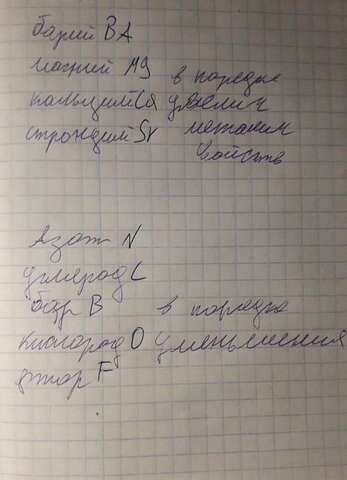 барий BA
магний Mg в порядке
кальций Ca увелич
стронций Sr металлич
свойств
Азот N
углерод C
бор B в порядке
кислород O уменьшения
фтор F